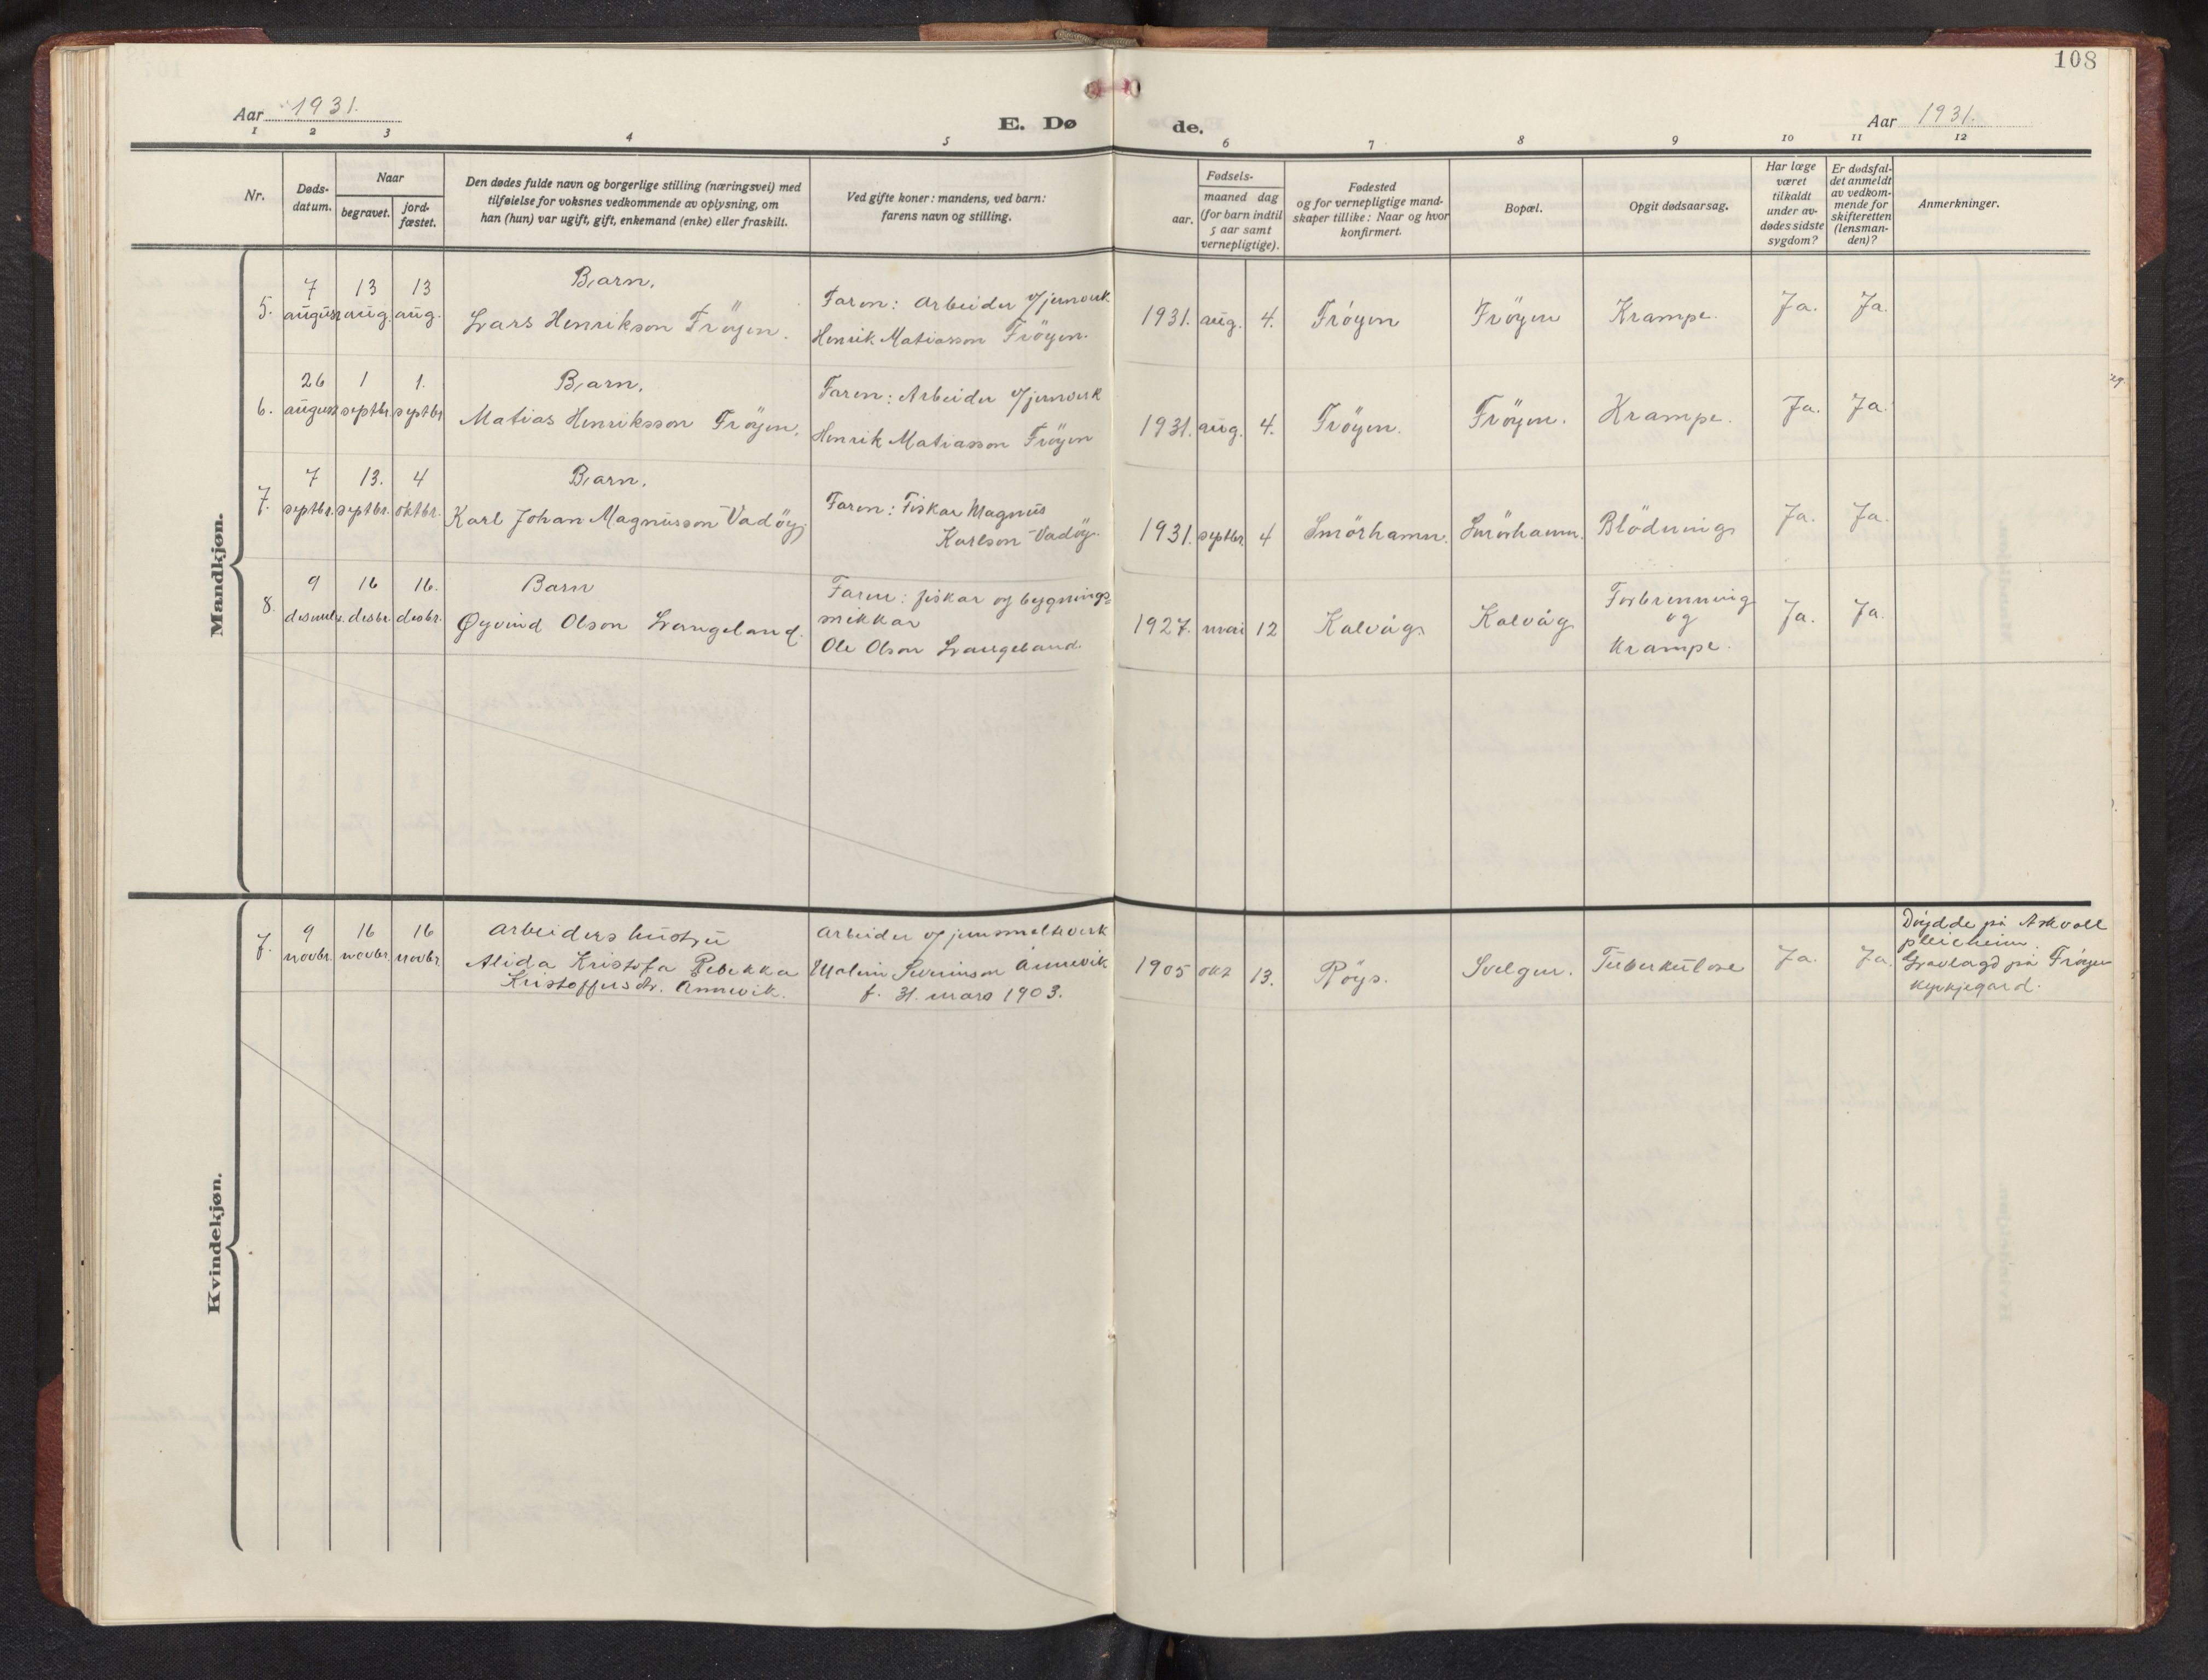 108
Aar 1931.
E. Dø de.
Aar 1931.
1 2 3 4 5 6 7 8 9 10 11 12
Nr.
Døds-
datum.
Naar
begravet.
jord-
fæstet.
Den dødes fulde navn og borgerlige stilling (næringsvei) med
tilføielse for voksnes vedkommende av oplysning, om
han (hun) var ugift, gift, enkemand (enke) eller fraskilt.
Ved gifte koner: mandens, ved barn:
farens navn og stilling.
Fødsels-
aar.
maaned dag
(for barn indtil
5 aar samt
vernepligtige).
Fødested
og for vernepligtige mand-
skaper tillike: Naar og hvor
konfirmert.
Bopæl.
Opgit dødsaarsag.
Har læge
været
tilkaldt
under av-
dødes sidste
sygdom?
Er dødsfal-
det anmeldt
av vedkom-
mende for
skifteretten
(lensman-
den)?
Anmerkninger.
Mandkjøn.
5.
7 august
13 aug.
13 aug.
Barn.
Lars Henrikson Fröyen.
Faren: Arbeider v/jernverk
Henrik Matiasson Fröyen.
1931. aug. 4.
Fröyen
Fröyen
Krampe.
Ja.
Ja.
6.
26 august
1 septbr.
1. septbr
Barn.
Matias Henriksson Fröyen.
Faren: Arbeider v/jernverk
Henrik Matiasson Fröyen
1931. aug. 4.
Fröyen.
Fröyen.
Krampe.
Ja.
Ja.
7.
7 septbr.
13. septbr.
4 oktbr.
Barn.
Karl Johan Magnusson Vadöy.
Faren: Fiskar Magnus
Karlson Vadöy.
1931. septbr 4
Smörhamn.
Smörhamn.
Blödning
Ja.
Ja.
8.
9
16 desbr.
16. desbr.
Barn
Øyvind Olson Langeland.
Faren: fiskar og bygnings-
snikkar
Ole Olson Langeland.
1927. mai 12
Kalvåg.
Kalvåg
Forbrenning
og
krampe.
Ja.
Ja.
Kvindekjøn.
7.
9 novbr.
16 novbr.
16 novbr.
Arbeiders hustru
Alida Kristofa Rebekka
Kristoffersdr. Annevik.
Arbeider v/ jernsmelteverk
Malvin Severinson Annevik
f. 31. mars 1903.
1905 okt 13.
Röys.
Svelgen.
Tuberkulose
Ja.
Ja.
Döydde på Askvoll
pleieheim.
Gravlagd på Fröyen
kyrkjegard.